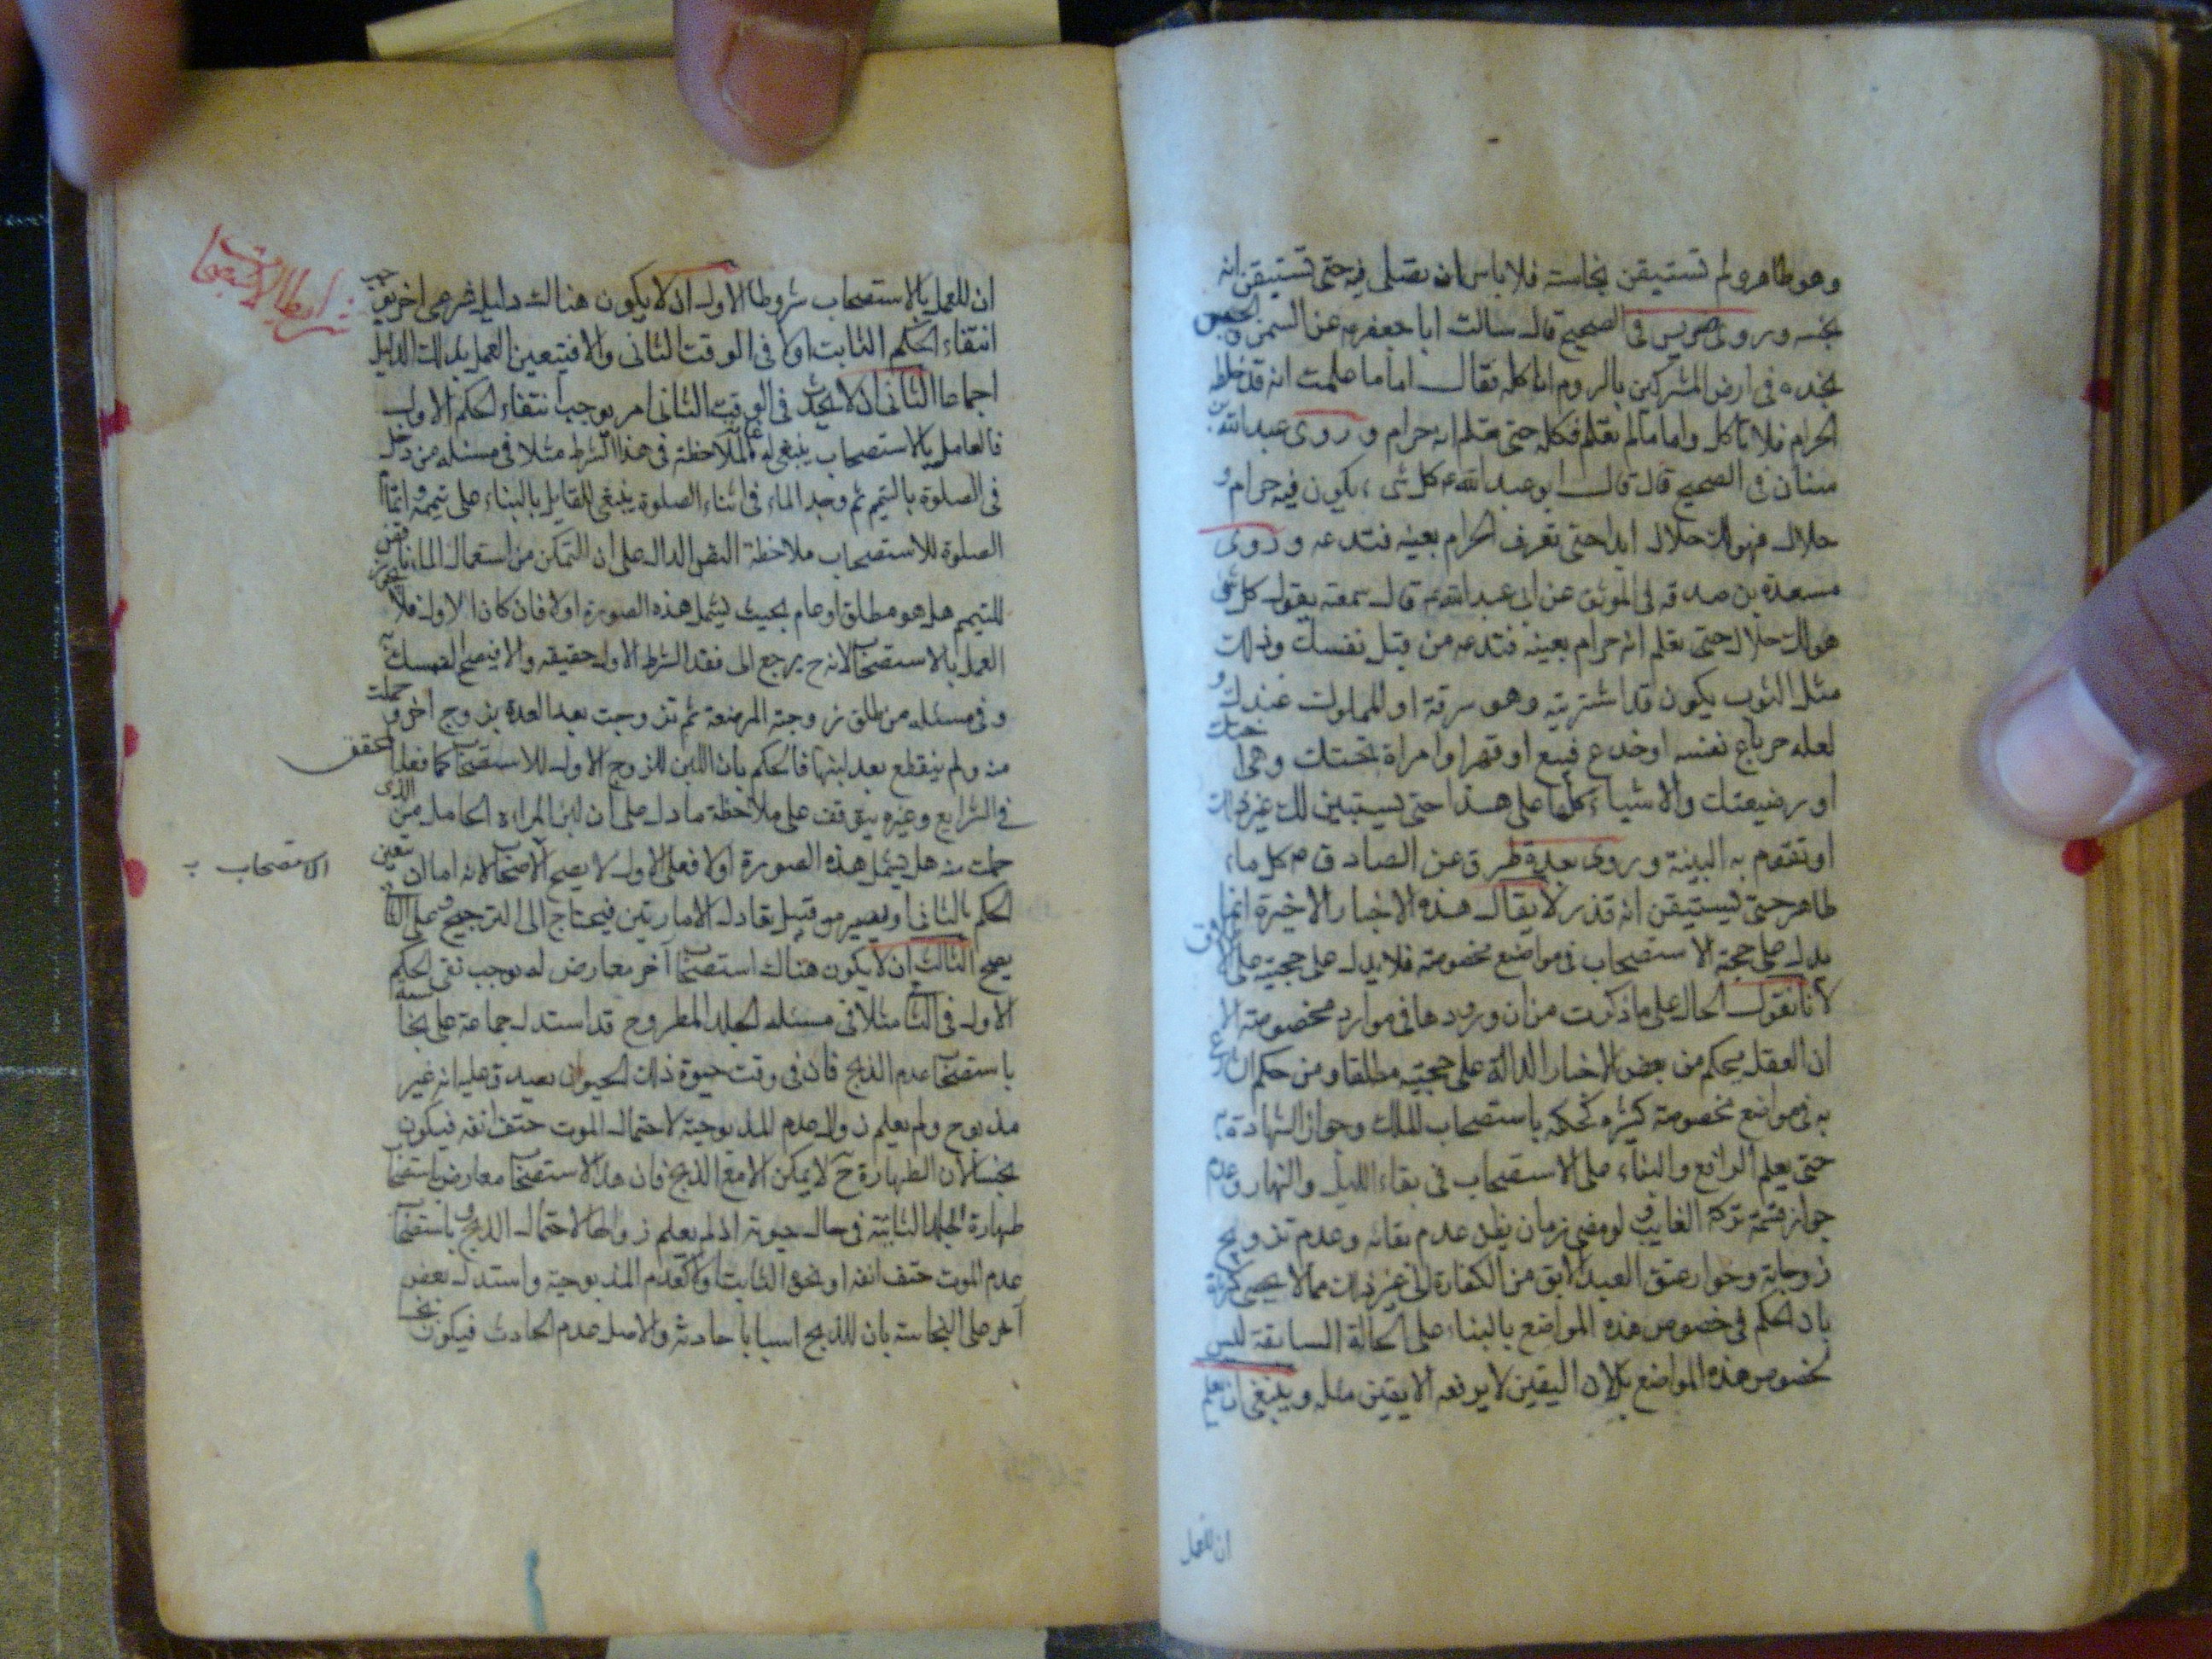 وهو طاهر ولم تستيقن نجاسته فلا باس ان تصلى فيه حتى تستيقن انه
نجسه وروى ضريس فى الصحيح قال سالت ابا جعفر ع عن السمن والجبن
نجده فى ارض المشركين بالروم اناكله فقال اما ما علمت انه قد خلطه
الحرام فلا تاكل واما ما لم تعلم فكله حتى تعلم انه حرام وروى عبد الله بن
سنان فى الصحيح قال قال ابو عبد الله ع كل شىء يكون فيه حرام و
حلال فهو لك حلال ابدا حتى تعرف الحرام بعينه فتدعه وروى
مسعدة بن صدقه فى الموثق عن ابى عبد الله ع قال سمعته يقول كل شئ
هو لك حلال حتى تعلم انه حرام بعينه فتدعه من قبل نفسك وذلك
مثل الثوب يكون قد اشتريته وهو سرقة او المملوك عندك و
لعله حر باع نفسه او خدع فبيع او قهر او امراة تحتك وهى اختك
او رضيعتك والاشياء كلها على هذا حتى يستبين لك غير ذلك
او تقوم به البينة وروى بعدة طرق عن الصادق ع كل ماء
طاهر حتى يستيقن انه قذر لا يقال هذه الاخبار الاخيرة انما
يدل على حجية الاستصحاب فى مواضع مخصوصة فلا يدل على حجيته على الاطلاق
لانا نقول الحال على ما ذكرت من ان ورودها فى موارد مخصوصة الا
ان العقل يحكم من بعض الاخبار الدالة على حجيته مطلقا ومن حكم الشارع
به فى مواضع مخصوصة كثيرة كحكمه باستصحاب الملك وجواز الشهادة به
حتى يعلم الرافع والبناء على الاستصحاب فى بقاء الليل والنهار وعدم
جواز قسمة تركة الغايب ولو مضى زمان يظن عدم بقائه وعدم تزويج
زوجاته وجواز عتق العبد الابق من الكفارة الى غير ذلك مما لا يحصى كثرة
بان الحكم فى خصوص هذه المواضع بالبناء على الحالة السابقة ليس
لخصوص هذه المواضع بل لان اليقين لا يرفعه الا يقين مثله وينبغى ان يعلم
ان للعمل
ان للعمل بالاستصحاب شروطا الاول ان لا يكون هناك دليل شرعى اخر يوجب
شرايط الاستصحاب
انتفاء الحكم الثابت اولا فى الوقت الثانى والا فيتعين العمل بذلك الدليل
اجماعا الثانى ان لا يحدث فى الوقت الثانى امر يوجب انتفاء الحكم الاول
فالعامل بالاستصحاب ينبغى له غاية الملاحظة فى هذا الشرط مثلا فى مسئله من دخل
فى الصلوة بالتيمم ثم وجد الماء فى اثناء الصلوة ينبغى للقايل بالبناء على تيممه واتمام
الصلوة للاستصحاب ملاحظة النص الدال على ان التمكن من استعمال الماء ناقض
للتيمم هل هو مطلق او عام بحيث يشمل هذه الصورة اولا فان كان الاول فلا يجوز
العمل بالاستصحاب لانه ح يرجع الى فقد الشرط الاول حقيقه والا فيصح التمسك به
وفى مسئله من طلق زوجته المرضعة ثم تزوجت بعد العدة بزوج اخر وحملت
منه ولم ينقطع بعد لبنها فالحكم بان اللبن للزوج الاول للاستصحاب كما فعله المحقق
فى الشرايع وغيره يتوقف على ملاحظة ما دل على ان لبن المراة الحامل من الذى
حملت منه هل يشمل هذه الصورة اولا فعلى الاول لا يصح الاستصحاب لانه اما ان يتعين
الاستصحاب
الحكم بالثانى او يصير من قبيل تعادل الامارتين فيحتاج الى الترجيح وعلى الثانى
يصح الثالث ان لا يكون هناك استصحاب آخر معارض له يوجب نفى الحكم
الاول فى الثانى مثلا فى مسئله الجلد المطروح قد استدل جماعة على نجاسته
باستصحاب عدم الذبح فان فى وقت حيوة ذلك الحيوان يصدق عليه انه غير
مذبوح ولم يعلم زوال عدم المذبوحية لاحتمال الموت حتف انفه فيكون
نجسا لان الطهارة ح لا يمكن الا مع الذبح فان هذا الاستصحاب معارض باستصحاب
طهارة الجلد الثابتة فى حال حيوته اذ لم يعلم زوالها لاحتمال الذبح وباستصحاب
عدم الموت حتف انفه او نحوه الثابت اولا كعدم المذبوحية واستدل بعض
آخر على النجاسة بان للذبح اسبابا حادثة والاصل عدم الحادث فيكون نجسا